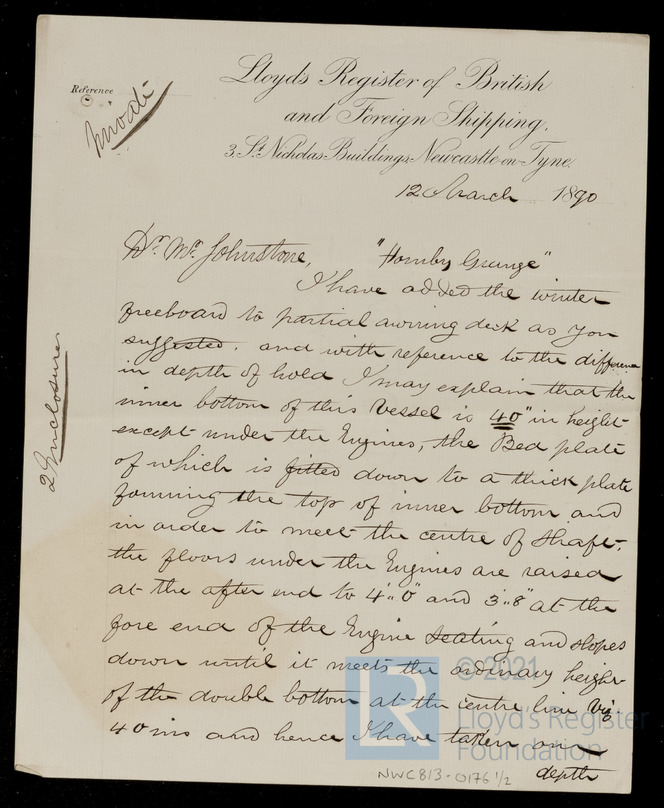 Lloyd's Register of British
and Foreign Shipping,
3, St. Nicholas Buildings, Newcastle-on-Tyne.
Reference
12 March 1890
Dr. Mr. Johnstone, "Hornby Grange"
I have added the winter
freeboard to partial awning deck as you
suggested. and with reference to the difference
in depth of hold I may explain that the
inner bottom of this Vessel is 40" in height
except under the Engines, the Bed plate
of which is fitted down to a thick plate
forming the top of inner bottom and
in order to meet the centre of shaft,
the floors under the Engines are raised
at the after end to 4'..0" and 3'..8" at the
fore end of the Engine seating and slopes
down until it meets the ordinary height
of the double bottom at the centre line viz
40 ins and hence I have taken our
depth
2 Enclosures
NWC813-0176 1/2
LR
© 2021
Lloyd's Register
Foundation